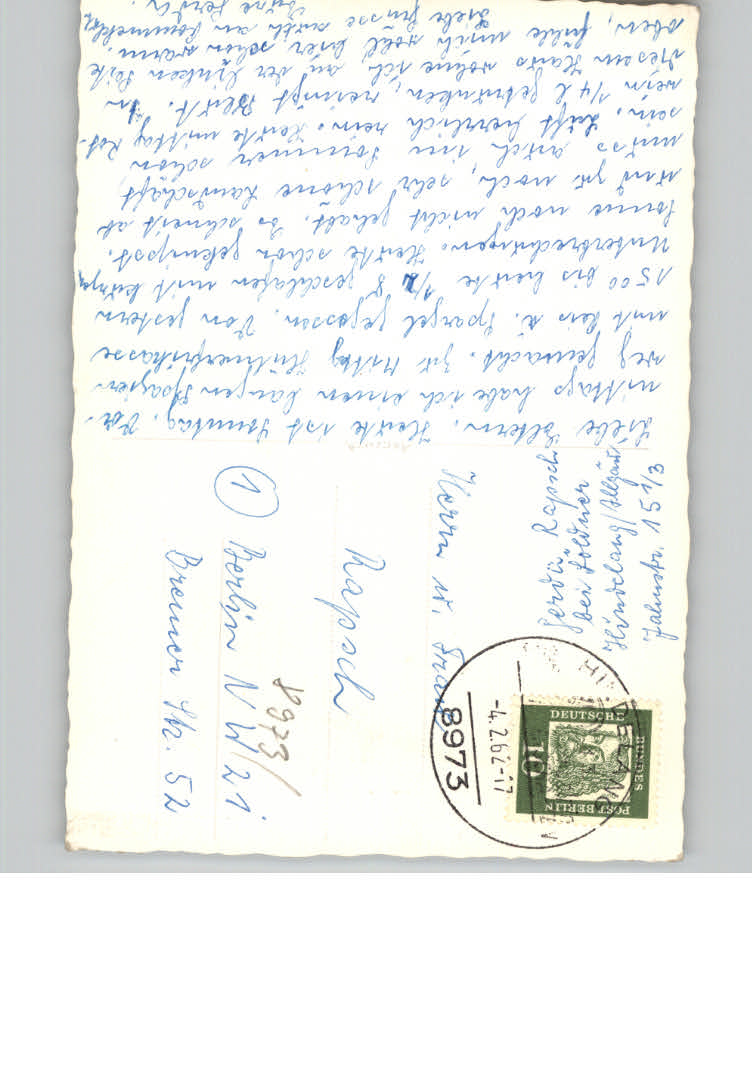 Liebe Eltern. Heute ist Sonntag. Vor-
mittags habe ich einen langen Spazier-
weg gemacht. Zu Mittag Hühnerfrikasse
mit Reis u. Spargel gegessen. Von gestern
15 00 bis heute 1/2 8 geschlafen mit kurzen
Unterbrechungen. Heute schon gekneippt.
Sonne noch nicht gehabt. Es schneit ab
und zu noch, sehr schöne Landschaft
muss auch im Sommer schön
sein. Luft herrlich rein. Heute mittag Rot-
wein 1/4 l getrunken, reinigt Blut. In
diesem Haus wohne ich an der linken Seite
oben, fühle mich wohl hier schon warm.
Liebe Grüsse auch an
Eure
Rapsch
bei Söldner
Hindelang/Allgäu
Jahnstr. 15 1/3
Herrn W. Franz
Rapsch
1 Berlin NW 21
8973/
Bremer Str. 52
8973
HINDELANG
-4.2.62-17
DEUTSCHE
BUNDES
POST BERLIN
10